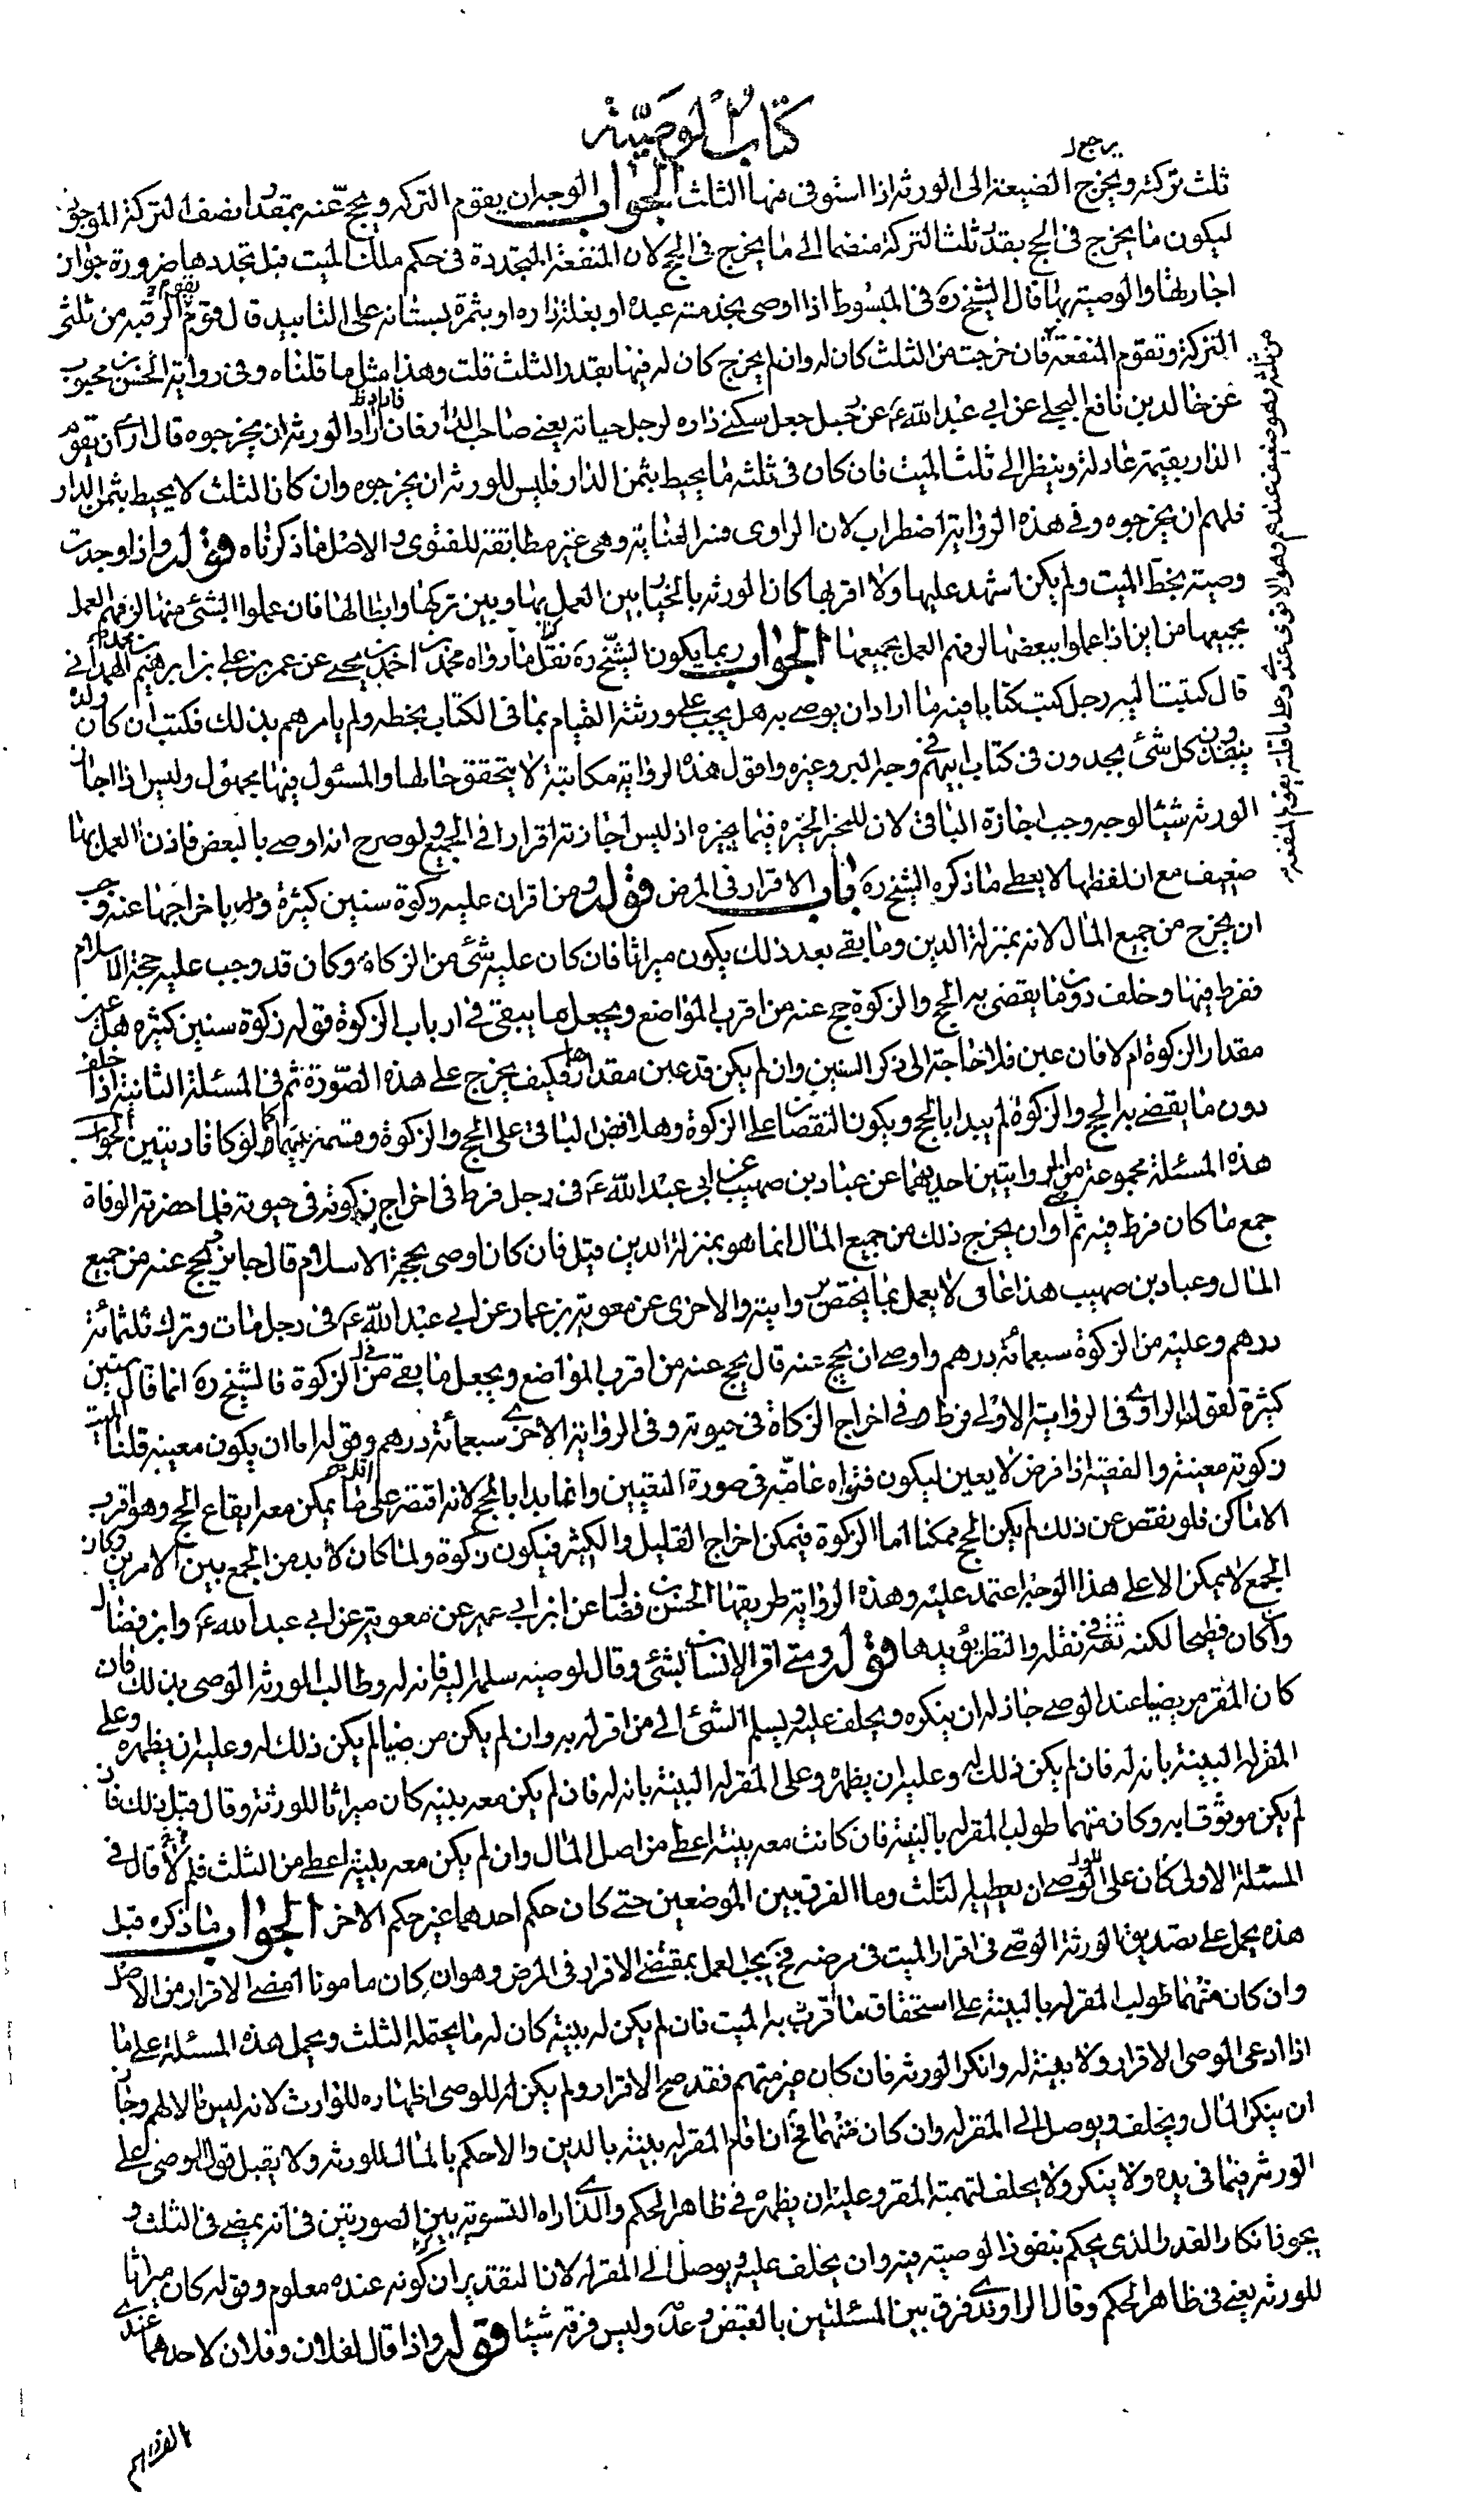 كتاب الوصيّة
يرجع
ثلث تركته ويخرج الضيعة الى الورثة اذا استوفى منها الثلث الجواب الوجه ان يقوم التركة ويحجّ عنه بمقدار نصف التركة الموجودة
ليكون ما يخرج فى الحج بقدر ثلث التركة منضما الى ما يخرج فى الحج لان المنفعة المتجددة فى حكم ملك الميت قبل تجددها ضرورة جواز
اجارتها والوصية بها قال الشيخ ره فى المبسوط اذا اوصى بخدمة عبده او بغلة داره او بثمرة بستانه على التابيد قال قوم تقوم الرقبة من ثلث
التركة وتقوم المنفعة فان خرجت من الثلث كان له وان لم يخرج كان له فيها بقدر الثلث قلت وهذا مثل ما قلناه وفى رواية الحسن بن محبوب
عن خالد بن نافع البجلى عن ابى عبد الله ع عن رجل جعل سكنى داره لرجل حياته يعنى صاحب الدار فان اراد الورثة ان يخرجوه قال ارى ان تقوم
الدار بقيمة عادلة وينظر الى ثلث الميت فان كان فى ثلثه ما يحيط بثمن الدار فليس للورثة ان يخرجوه وان كان الثلث لا يحيط بثمن الدار
فلهم ان يخرجوه وفى هذه الرواية اضطراب لان الراوى فسر العناية وهى غير مطابقة للفتوى والاصل ما ذكرناه قوله واذا وجدت
وصية بخط الميت ولم يكن اشهد عليها ولا اقر بها كان الورثة بالخيار بين العمل بها وبين تركها وابطالها فان عملوا بشئ منها لزمهم العمل
بجميعها من اين اذا عملوا ببعضها لزمهم العمل بجميعها الجواب ربما يكون الشيخ ره نقل ما رواه محمد بن احمد بن يحيى عن عمر بن على بن ابرهيم بن محمد الهمدانى
قال كتبت اليه رجل كتب كتابا فيه ما اراد ان يوصى به هل يجب على ورثته القيام بما فى الكتاب بخطه ولم يامرهم بذلك فكتب ان كان ولده
ينفذون كل شئ يجدون فى كتاب ابيهم فى وجه البر وغيره واقول هذه الرواية مكاتبة لا يتحقق حالها والمسئول فيها مجهول وليس اذا اجاز
الورثة شيئا لوجه وجب اجازة الباقى لان للمخير الخيرة فيما يجيزه اذ ليس اجازته اقرارا فى الجميع ولو صرح انه اوصى بالبعض فاذن العمل بها
ضعيف مع ان لفظها لا يعطى ما ذكره الشيخ ره باب الاقرار فى المرض قوله ومن اقر ان عليه زكوة سنين كثيرة وامر باخراجها عنه وجب
ان يخرج من جميع المال لانه بمنزلة الدين وما بقى بعد ذلك يكون ميراثا فان كان عليه شئ من الزكاة وكان قد وجب عليه حجة الاسلام
ففرط فيها وخلف دون ما يقضى به الحج والزكوة حج عنه من اقرب المواضع ويجعل ما يبقى فى ارباب الزكوة قوله زكوة سنين كثيرة هل عين
مقدار الزكوة ام لا فان عين فلا حاجة الى ذكر السنين وان لم يكن قد عين مقدارها فكيف يخرج على هذه الصورة ثم فى المسئلة الثانية اذا خلف
دون ما يقضى به الحج والزكوة لم يبدا بالحج ويكون النقصان على الزكوة وهلا افض الباقى على الحج والزكوة وقسمه بينهما كما لو كانا دينين الجواب
هذه المسئلة مجموعة من الروايتين احديهما عن عباد بن صهيب عن ابى عبد الله ع فى رجل فرط فى اخراج زكوته فى حيوته فلما حضرته الوفاة
جمع ما كان فرط فيه ثم اوصى ان يخرج ذلك من جميع المال انما هو بمنزلة الدين قيل فان كان اوصى بحجة الاسلام قال جايز يحج عنه من جميع
المال وعباد بن صهيب هذا عامى لا يعمل بما يختص بروايته والاخرى عن معوية بن عمار عن ابى عبد الله ع فى رجل مات وترك ثلثمائة
درهم وعليه من الزكوة سبعمائة درهم واوصى ان يحج عنه قال يحج عنه من اقرب المواضع ويجعل ما بقى فى الزكوة فالشيخ ره انما قال سنين
كثيرة لقول الراوى فى الرواية الاولى فرط فى اخراج الزكاة فى حيوته وفى الرواية الاخرى سبعمائة درهم وقوله اما ان يكون معينة قلنا الميت
زكوته معينة والفقيه اذا فرض لا يعين ليكون فتواه عامة فى صورة التعيين وانما بدا بالحج لانه اقتصر على اقل ما يمكن معه ايقاع الحج وهو اقرب
الاماكن فلو نقص عن ذلك لم يكن الحج ممكنا اما الزكوة فيمكن اخراج القليل والكثير فيكون زكوة ولما كان لا بد من الجمع بين الامرين وكان
الجمع لا يمكن الا على هذا الوجه اعتمد عليه وهذه الرواية طريقها الحسن بن فضال عن ابن ابى عمير عن معوية عن ابى عبد الله ع وابن فضال
وان كان فطحيا لكنه ثقة فى نقله والنظر يؤيدها قوله ومتى اقر الانسان بشئ وقال لوصيه سلمه اليه فانه له وطالب الورثة الوصى بذلك فان
كان المقر مرضيا عند الوصى جاز له ان ينكره ويحلف عليه ويسلم الشئ الى من اقر له به وان لم يكن مرضيا لم يكن ذلك له وعليه ان يظهره وعلى
المقر له البينة بانه له فان لم يكن ذلك له وعليه ان يظهره وعلى المقر له البينة بانه له فان لم يكن معه بينة كان ميراثا للورثة وقال قبل ذلك فان
لم يكن موثوقا به وكان متهما طولب المقر له بالبينة فان كانت معه بينة اعطى من اصل المال وان لم يكن معه بينة اعطى من الثلث فلم لا قال فى
المسئلة الاولى كان على الوصى ان يعطيه الثلث وما الفرق بين الموضعين حتى كان حكم احدهما غير حكم الاخر الجواب ما ذكره قبل
هذه يحمل على تصديق الورثة الوصى فى اقرار الميت فى مرضه فح يجب العمل بمقتضى الاقرار فى المرض وهو ان كان مامونا امضى الاقرار من الاصل
وان كان متهما طولب المقر له بالبينة على استحقاق ما اقر به الميت فان لم يكن له بينة كان له ما يحتمله الثلث ويحمل هذه المسئلة على ما
اذا ادعى الوصى الاقرار ولا بينة له وانكر الورثة فان كان غير متهم فقد صح الاقرار ولم يكن للوصى اظهاره للوارث لانه ليس مالا لهم وجاز
ان ينكر المال ويحلف ويوصل الى المقر له وان كان متهما فح ان اقام المقر له بينة بالدين والا حكم بالمال للورثة ولا يقبل قول الوصى على
الورثة فيما فى يده ولا ينكر ولا يحلف لتهمة المقر وعليه ان يظهره فى ظاهر الحكم والذى اراه التسوية بين الصورتين فى انه يمضى فى الثلث و
يجوز انكار القدر الذى يحكم بنفوذ الوصية فيه وان يحلف عليه ويوصل الى المقر له لان التقدير ان كونه عنده معلوم وقوله كان ميراثا
للورثة يعنى فى ظاهر الحكم وقال الراوندى فرق بين المسئلتين بالقبض وعدمه وليس فرقه شيئا قوله واذا قال لفلان وفلان لاحدهما عندى